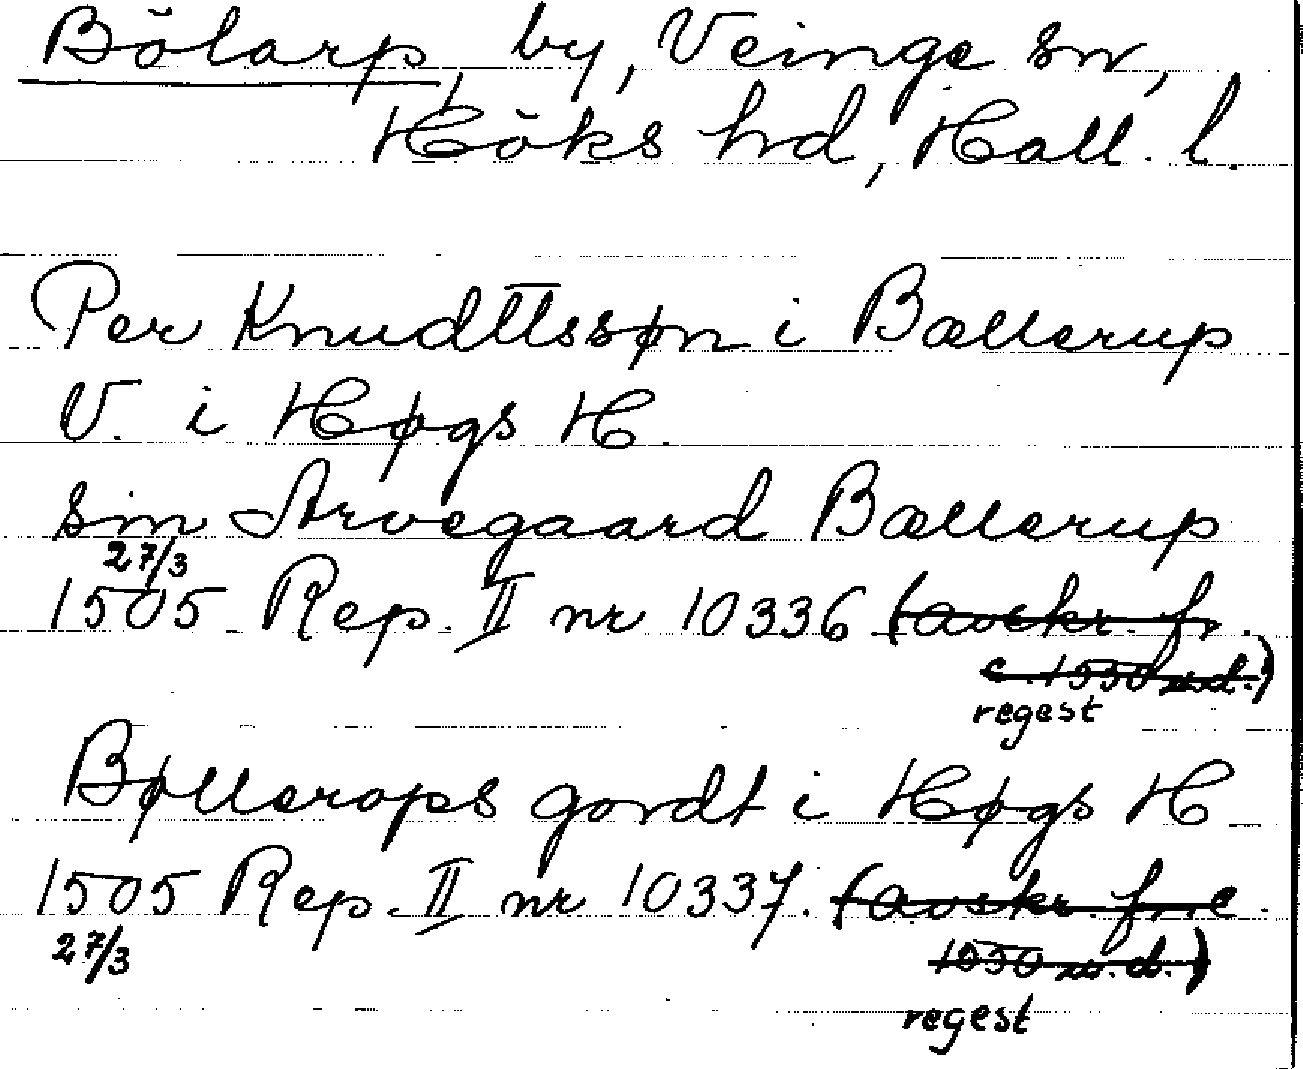 Bölarp, by, Veinge sn,
Höks hd, Hall. l.
Per Knudttssøn i Bællerup
V. i Høgs H.
sin Arvegaard Bællerup
27/3
1505 Rep. II nr 10336 (avskr. fr.
c. 1550 u.d.)
regest
Bøllerops gordt i Høgs H
1505 Rep. II nr 10337. (avskr. fr. c.
27/3
1550 u.d.)
regest